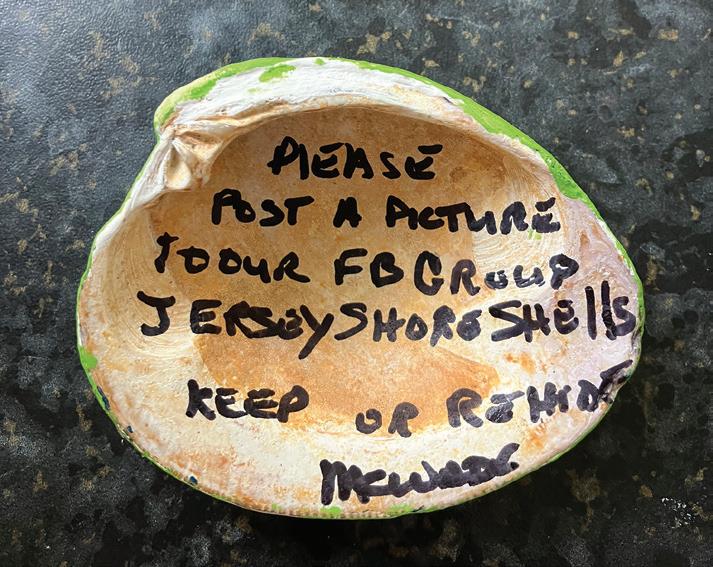 PLEASE
POST A PICTURE
TO OUR FB GROUP
JERSEY SHORE SHells
KEEP OR REHIDE